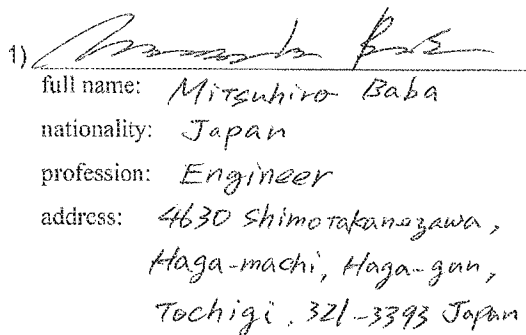 1)
full name: Mitsuhiro Baba
nationality: Japan
profession: Engineer
address: 4630 Shimotakanezawa,
Haga-machi, Haga-gun,
Tochigi, 321-3393 Japan